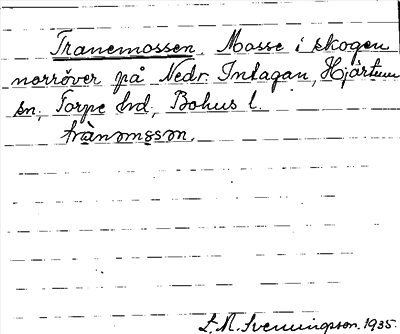 Tranemossen. Mosse i skogen
norröver på Nedr. Intagan, Hjärtum
sn, Torpe hd, Bohus l.
trànmɷsɷn.
L. M. Svenningsson. 1935.